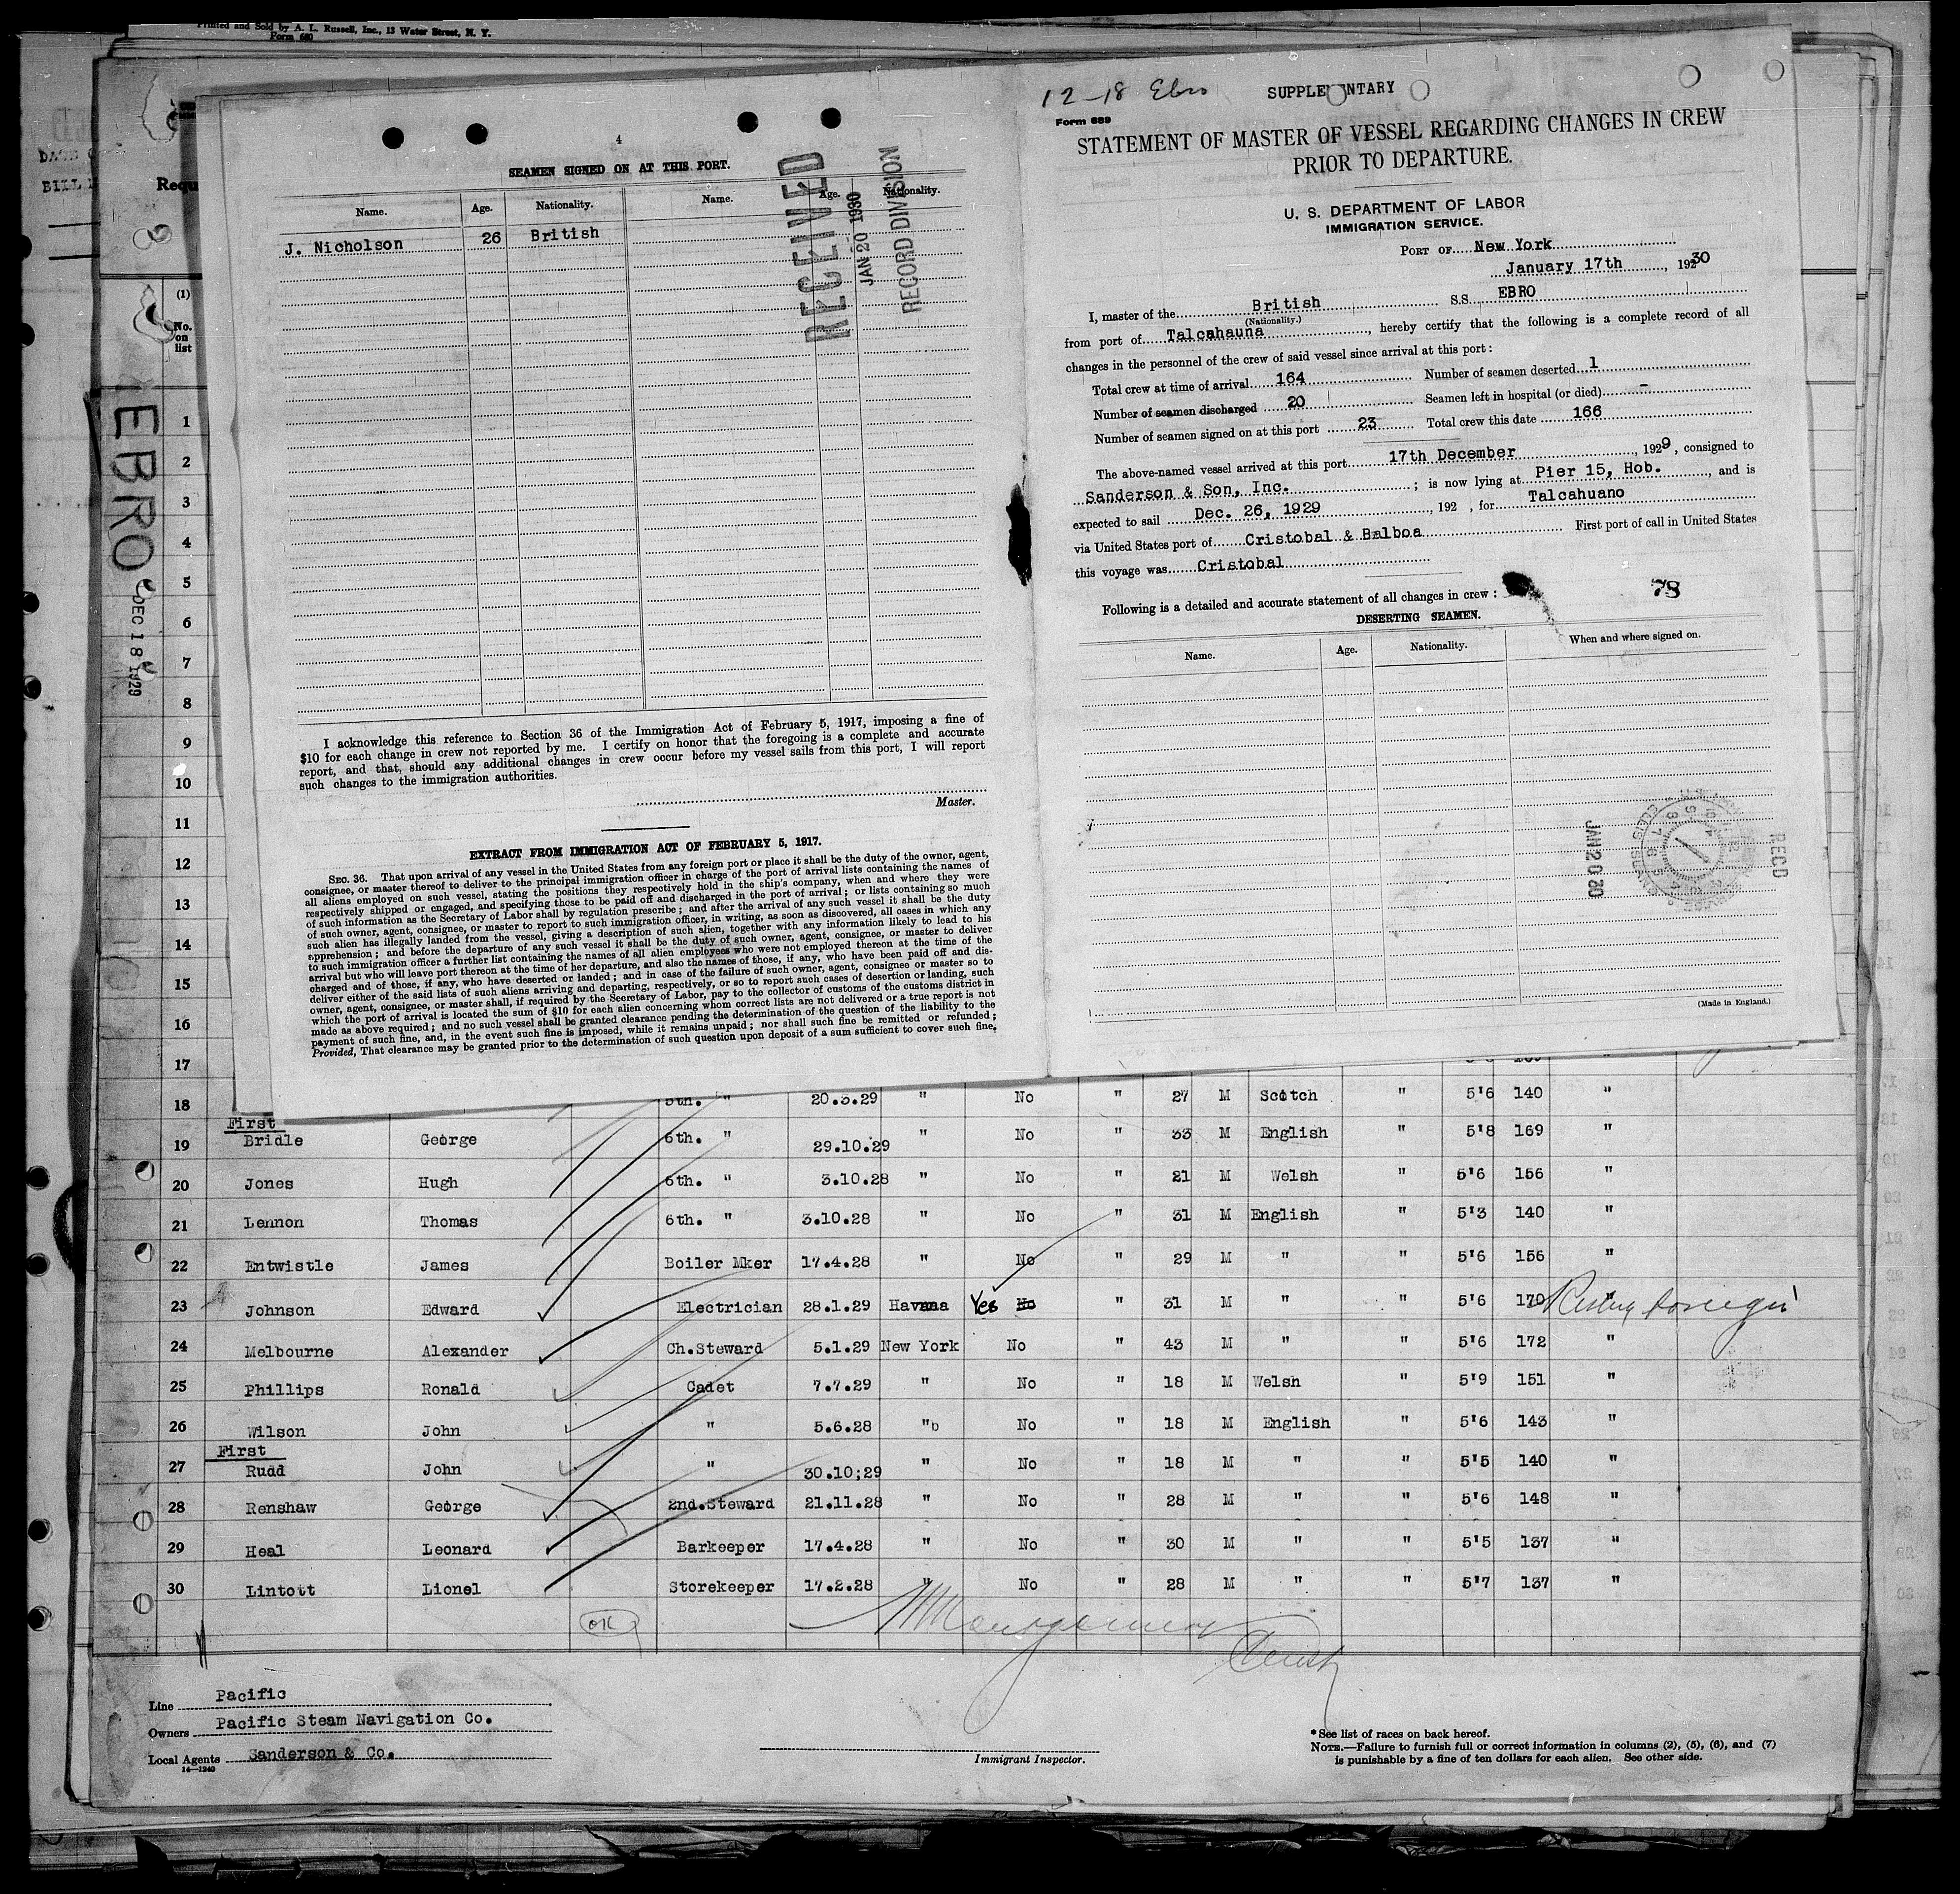 Printed and Sold by A. L. Russell, Inc., 13 Water Street, N. Y.
Form 680
BILL
Requ
(1)
No. on list
EBRO
DEC 18 1929
1
2
3
4
5
6
7
8
9
10
11
12
13
14
15
16
17
4
SEAMEN SIGNED ON AT THIS PORT.
Name. Age. Nationality. Name. Age. Nationality.
J. Nicholson 26 British
RECEIVED
JAN 20 1930
RECORD DIVISION
I acknowledge this reference to Section 36 of the Immigration Act of February 5, 1917, imposing a fine of
$10 for each change in crew not reported by me. I certify on honor that the foregoing is a complete and accurate
report, and that, should any additional changes in crew occur before my vessel sails from this port, I will report
such changes to the immigration authorities.
Master.
EXTRACT FROM IMMIGRATION ACT OF FEBRUARY 5, 1917.
SEC. 36. That upon arrival of any vessel in the United States from any foreign port or place it shall be the duty of the owner, agent,
consignee, or master thereof to deliver to the principal immigration officer in charge of the port of arrival lists containing the names of
all aliens employed on such vessel, stating the positions they respectively hold in the ship's company, when and where they were
respectively shipped or engaged, and specifying those to be paid off and discharged in the port of arrival; or lists containing so much
of such information as the Secretary of Labor shall by regulation prescribe; and after the arrival of any such vessel it shall be the duty
of such owner, agent, consignee, or master to report to such immigration officer, in writing, as soon as discovered, all cases in which any
such alien has illegally landed from the vessel, giving a description of such alien, together with any information likely to lead to his
apprehension; and before the departure of any such vessel it shall be the duty of such owner, agent, consignee, or master to deliver
to such immigration officer a further list containing the names of all alien employees who were not employed thereon at the time of the
arrival but who will leave port thereon at the time of her departure, and also the names of those, if any, who have been paid off and dis-
charged and of those, if any, who have deserted or landed; and in case of the failure of such owner, agent, consignee or master so to
deliver either of the said lists of such aliens arriving and departing, respectively, or so to report such cases of desertion or landing, such
owner, agent, consignee, or master shall, if required by the Secretary of Labor, pay to the collector of customs of the customs district in
which the port of arrival is located the sum of $10 for each alien concerning whom correct lists are not delivered or a true report is not
made as above required; and no such vessel shall be granted clearance pending the determination of the question of the liability to the
payment of such fine, and, in the event such fine is imposed, while it remains unpaid; nor shall such fine be remitted or refunded;
Provided, That clearance may be granted prior to the determination of such question upon deposit of a sum sufficient to cover such fine.
12-18 Ebro
SUPPLEMENTARY
Form 689
STATEMENT OF MASTER OF VESSEL REGARDING CHANGES IN CREW
PRIOR TO DEPARTURE.
U. S. DEPARTMENT OF LABOR
IMMIGRATION SERVICE.
PORT OF New York
January 17th, 1930
I, master of the British S.S. EBRO
(Nationality.)
from port of Talcahauna, hereby certify that the following is a complete record of all
changes in the personnel of the crew of said vessel since arrival at this port:
Total crew at time of arrival 164 Number of seamen deserted 1
Number of seamen discharged 20 Seamen left in hospital (or died) -
Number of seamen signed on at this port 23 Total crew this date 166
The above-named vessel arrived at this port 17th December, 1929, consigned to
Sanderson & Son, Inc.; is now lying at Pier 15, Hob., and is
expected to sail Dec. 26, 1929, 192 , for Talcahuano
via United States port of Cristobal & Balboa First port of call in United States
this voyage was Cristobal
Following is a detailed and accurate statement of all changes in crew: 78
DESERTING SEAMEN.
Name. Age. Nationality. When and where signed on.
JAN 20 30
REC'D
(Made in England.)
18 5th. " 20.3.29 " No " 27 M Scotch " 5'6 140 "
First
19 Bridle George 6th. " 29.10.29 " No " 33 M English " 5'8 169 "
20 Jones Hugh 6th. " 3.10.28 " No " 21 M Welsh " 5'6 156 "
21 Lennon Thomas 6th. " 3.10.28 " No " 31 M English " 5'3 140 "
22 Entwistle James Boiler Mker 17.4.28 " No " 29 M " " 5'6 156 "
23 Johnson Edward Electrician 28.1.29 Havana Yes No " 31 M " " 5'6 170
24 Melbourne Alexander Ch.Steward 5.1.29 New York No " 43 M " " 5'6 172 "
25 Phillips Ronald Cadet 7.7.29 " No " 18 M Welsh " 5'9 151 "
26 Wilson John " 5.6.28 "b No " 18 M English " 5'6 143 "
First
27 Rudd John " 30.10;29 " No " 18 M " " 5'5 140 "
28 Renshaw George 2nd.Steward 21.11.28 " No " 28 M " " 5'6 148 "
29 Heal Leonard Barkeeper 17.4.28 " No " 30 M " " 5'5 137 "
30 Lintott Lionel Storekeeper 17.2.28 " No " 28 M " " 5'7 137 "
OK
Line Pacific
Owners Pacific Steam Navigation Co.
Local Agents Sanderson & Co.
14-1240
Immigrant Inspector.
* See list of races on back hereof.
NOTE.—Failure to furnish full or correct information in columns (2), (5), (6), and (7)
is punishable by a fine of ten dollars for each alien. See other side.